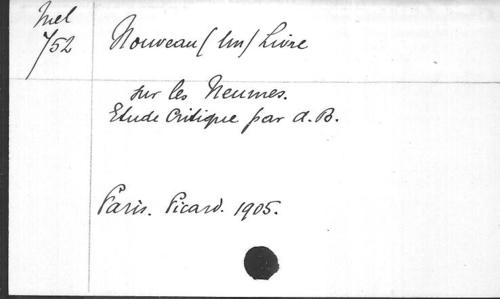 Mel
752
Nouveau (Un) Livre
sur les Neumes.
Etude Critique par A.B.
Paris. Picard. 1905.